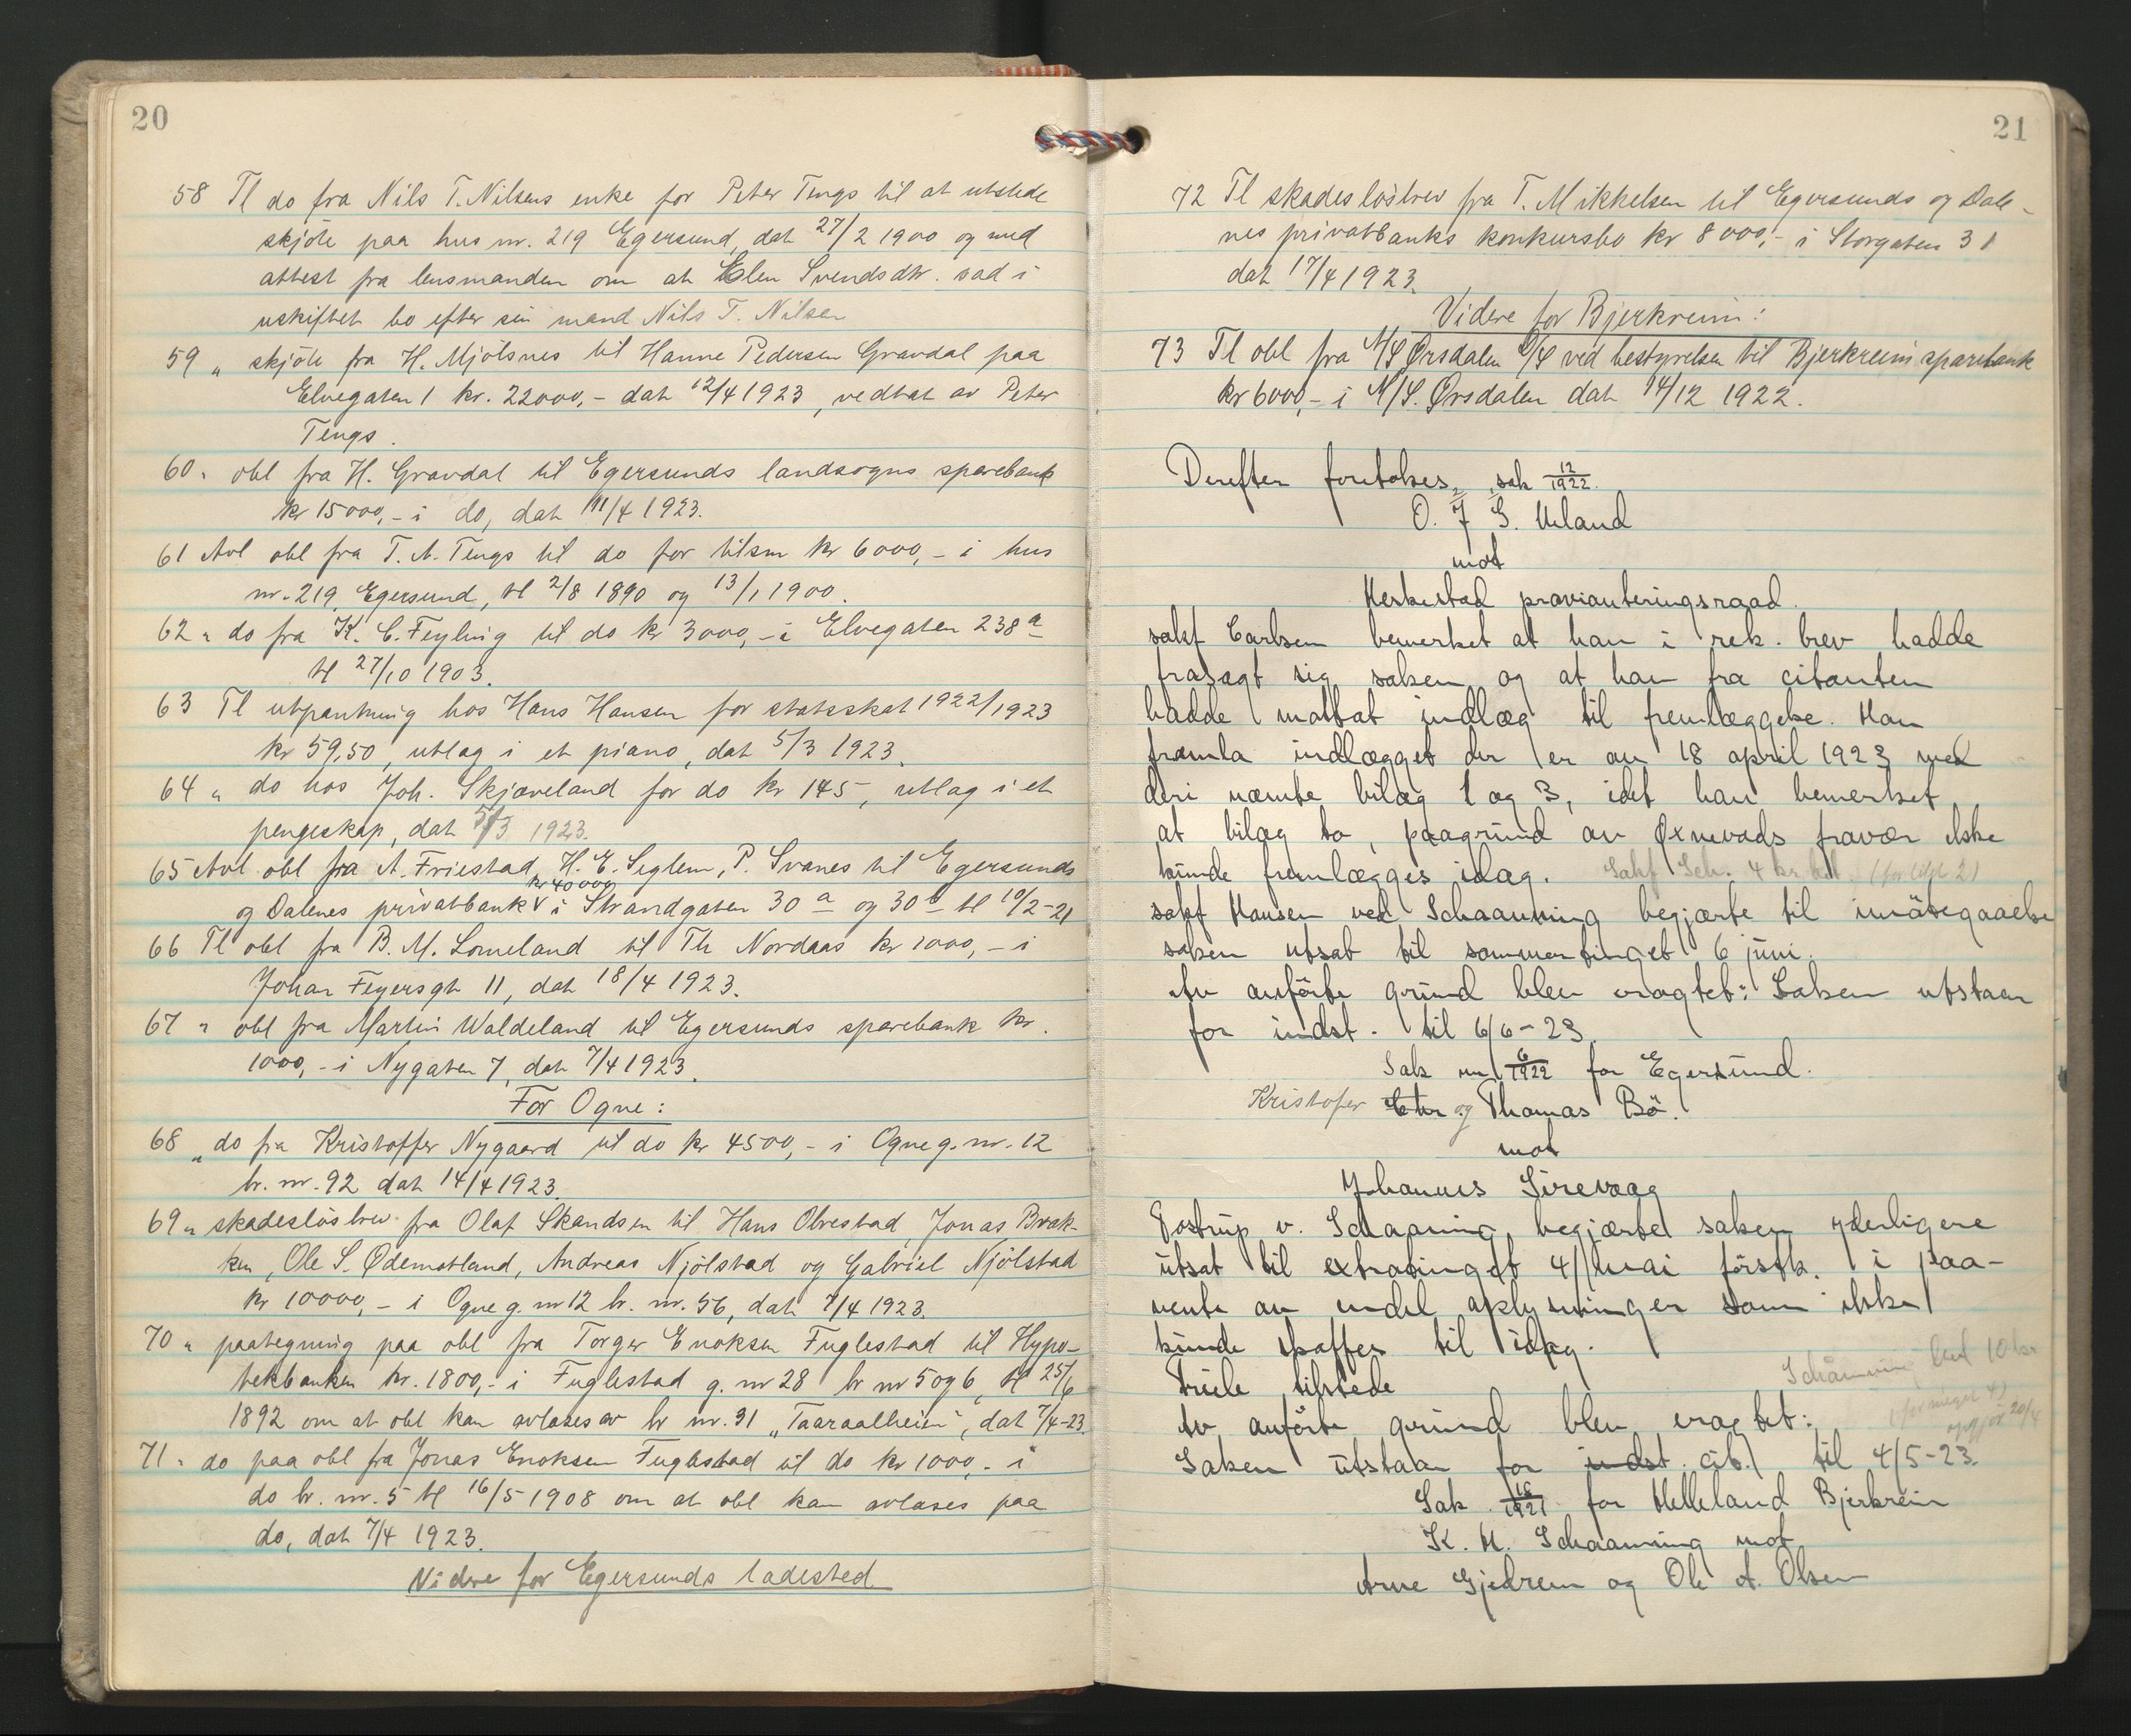 20
58 Tl do fra Nils T. Nilsens enke for Peter Tengs til at utstede
skjöte paa hus nr. 219 Egersund, dat 27/2 1900 og med
attest fra lensmanden om at Elen Svendsdtr. sad i
uskiftet bo efter sin mand Nils T. Nilsen
59 „ skjöte fra H. Mjölsnes til Hanne Pedersen Gravdal paa
Elvegaten 1 kr. 22000,- dat 12/4 1923, vedtat av Peter
Tengs.
60 „ obl fra H. Gravdal til Egersunds landsogns sparebank
kr 15000,- i do, dat 11/4 1923.
61 Avl obl fra T. A. Tengs til do for tilsm kr 6000,- i hus
nr. 219 Egersund, tl 2/8 1890 og 13/1 1900.
62 „ do fra K. C. Feyling til do kr 3000,- i Elvegaten 238 a
tl 27/10 1903.
63 Tl utpantning hos Hans Hansen for statsskat 1922/1923
kr 59,50, utlag i et piano, dat 5/3 1923.
64 „ do hos Joh. Skjæveland for do kr 145,- utlag i et
pengeskap, dat 5/3 1923.
65 Avl obl fra A. Friestad, H. E. Seglem, P. Svanes til Egersunds
kr 40000
og Dalenes privatbank i Strandgaten 30 a og 30 b tl 19/2-21
66 Tl obl fra B. M. Lomeland til Th Nordaas kr 1000,- i
Johan Feyersgt 11, dat 18/4 1923.
67 „ obl fra Martin Waldeland til Egersunds sparebank kr.
1000,- i Nygaten 7, dat 7/4 1923.
For Ogne:
68 „ do fra Kristoffer Nygaard til do kr 4500,- i Ogne g. nr. 12
br. nr. 92 dat 14/4 1923.
69 „ skadeslösbrev fra Olaf Skandsen til Hans Olvestad, Jonas Brak-
ken, Ole S. Ødemotland, Andreas Njölstad og Gabriel Njölstad
kr 10000,- i Ogne g. nr 12 br. nr. 56, dat 7/4 1923.
70 „ paategning paa obl fra Torger Enoksen Fuglestad til Hypo-
tekbanken kr. 1800,- i Fuglestad g. nr 28 br nr 5 og 6, tl 25/6
1892 om at obl kan avlöses av br nr. 31 „Taaraalheim", dat 7/4-23.
71 „ do paa obl fra Jonas Enoksen Fuglestad til do kr 1000,- i
do br. nr. 5 tl 16/5 1908 om at obl kan avlöses paa
do, dat 7/4 1923.
Videre for Egersunds ladested
21
72 Tl skadeslösbrev fra T. Mikkelsen til Egersunds og Dale-
nes privatbanks konkursbo kr 8000,- i Storgaten 31
dat 17/4 1923.
Videre for Bjerkreim:
73 Tl obl fra M/S Ørsdalen A/S ved bestyrelsen til Bjerkreim sparebank
kr 6000,- i M/S. Ørsdalen dat 14/12 1922.
Derefter foretokes, sak 12/1922.
O. J G. Ueland
mot
Heskestad provianteringsraad.
sakf Carlsen bemerket at han i rek. brev hadde
frasagt sig saken og at han fra citanten
hadde mottat indlæg til fremlæggelse. Han
framla indlægget der er av 18 april 1923 med
deri nævnte bilag 1 og 3, idet han bemerket
at bilag to, paagrund av Øxnevads fravær ikke
kunde fremlægges idag. Sakf Sch. 4 kr bet. (for bilg 2)
sakf Hansen ved Schaanning begjærte til imötegaaelse
saken utsat til sommertinget 6 juni.
Av anförte grund blev eragtet: Saken utstaar
for indst. til 6/6-23.
Sak nr 6/1922 for Egersund.
Kristofer Chr og Thomas Bö.
mot
Johannes Sirevaag
Tostrup v. Schaaning begjærte saken yderligere
utsat til extratinget 4/ mai förstk. i paa-
vente av endel oplysninger som ikke
kunde skaffes til idag.
Friele tilstede
Av anförte grund blev eragtet:
Schånning bet 10 kr
(for meget 4)
opgjör 20/4
Saken utstaar for indst. cit. til 4/5-23.
Sak 18/1921 for Helleland Bjerkreim
K. H. Schaanning mot
Arne Gjedrem og Ole A. Olsen